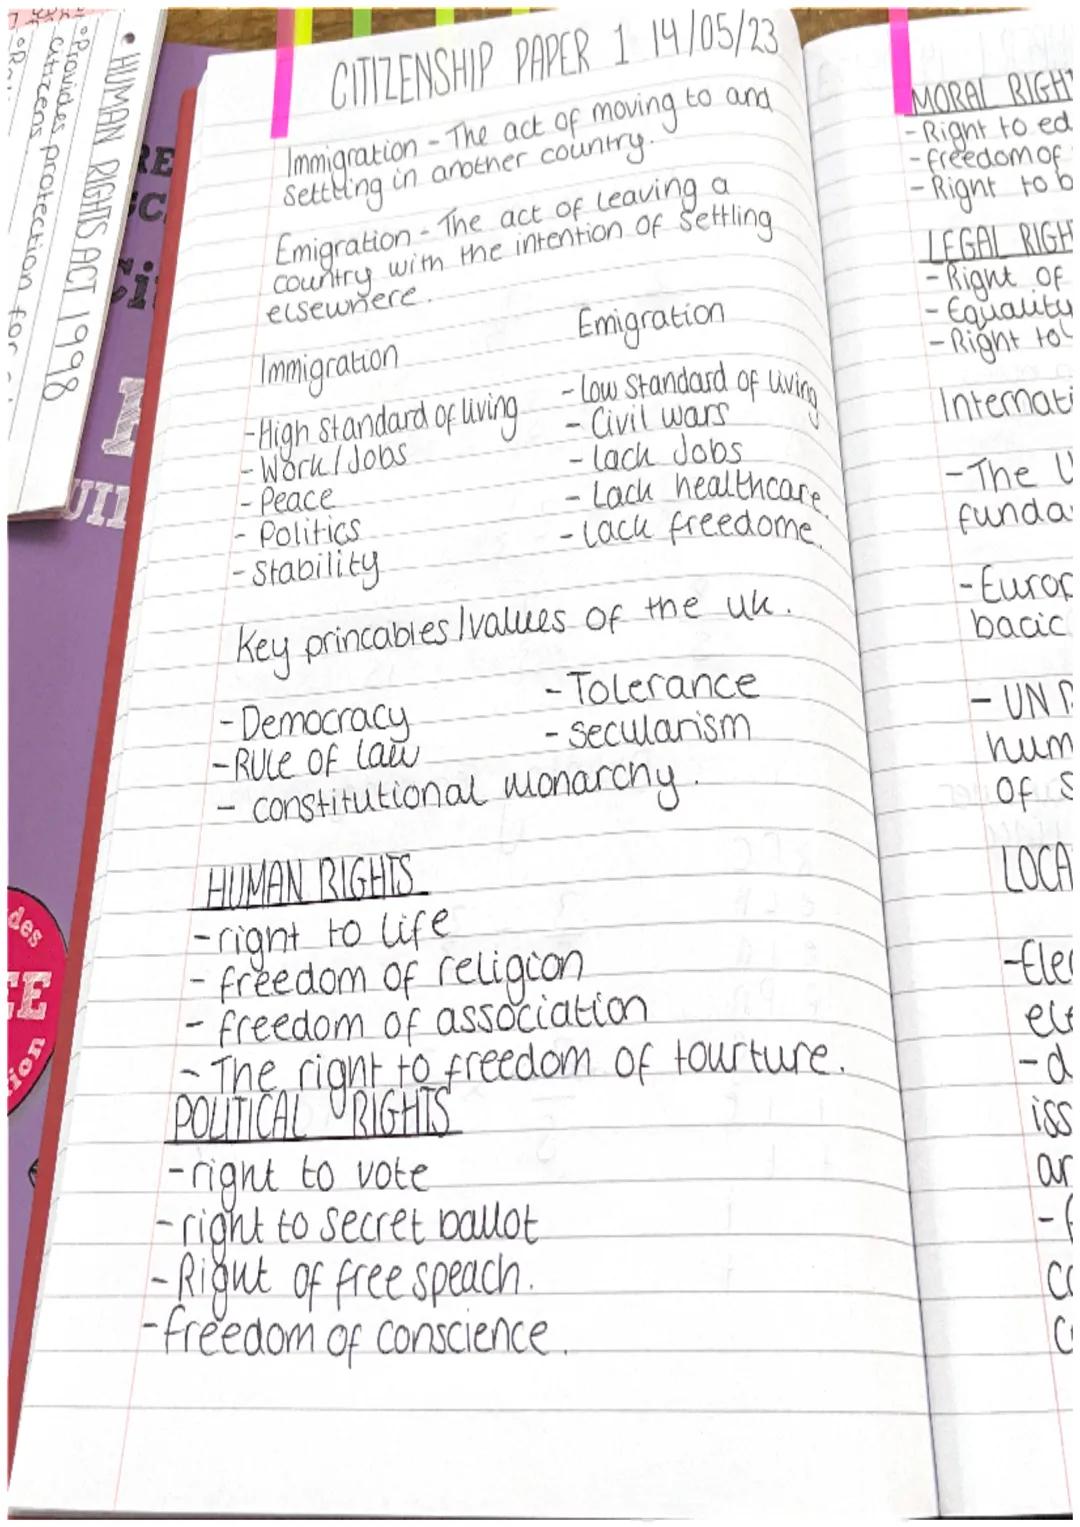 • HUMAN RIGHTS ACT 1998
Provides protection for
citizens
CITIZENSHIP PAPER 1 14/05/23
Immigration - The act of moving to and
settling in another country.
Emigration - The act of leaving a
country with the intention of settling
elsewhere.
Immigration
- High standard of living
- Work / Jobs
- Peace
- Politics
- Stability
Emigration
- Low standard of living
- Civil wars
- Lack Jobs
- Lack healthcare.
- Lack freedome.
Key princables / values of the uk.
- Democracy
- Rule of law
- constitutional monarchy.
- Tolerance
- secularism
HUMAN RIGHTS
- right to life
- freedom of religion
- freedom of association
- The right to freedom of tourture.
POLITICAL RIGHTS
- right to vote
- right to secret ballot
- Right of free speach.
- freedom of conscience.
MORAL RIGHT
- Right to ed
- freedom of
- Right to b
LEGAL RIGH
- Right of
- Equality
- Right to
Internati
- The U
funda
- Europ
bacic
- UN
hum
of s
LOCA
- Elec
ele
- d
iss
ar
- f
co
c
des
EE
tion